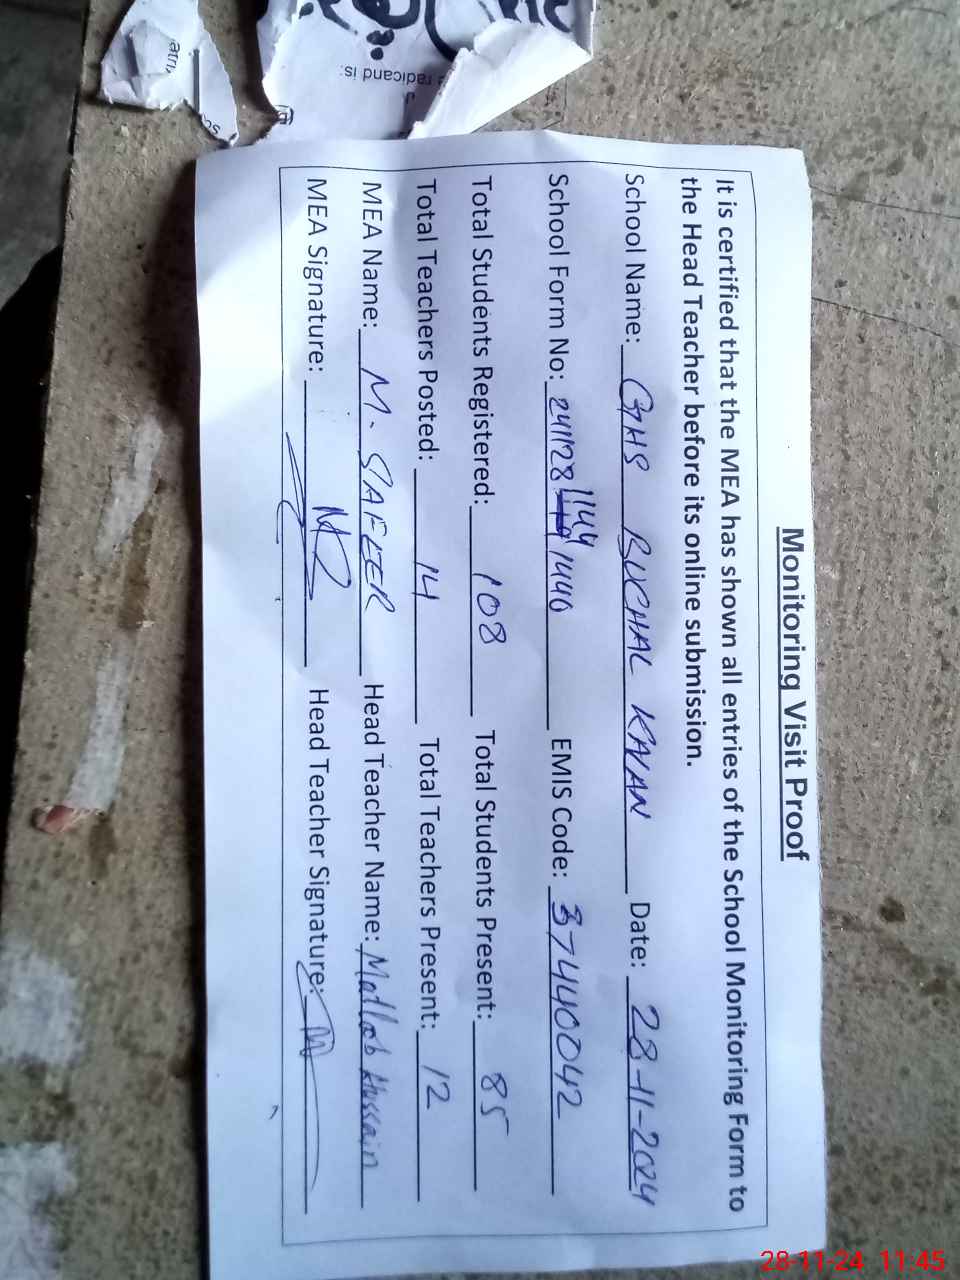 radicand is:
Monitoring Visit Proof
It is certified that the MEA has shown all entries of the School Monitoring Form to
the Head Teacher before its online submission.
School Name: GHS BUCHAL KALAN Date: 28-11-2024
School Form No: 241128 1144 1440 EMIS Code: 37440042
Total Students Registered: 108 Total Students Present: 85
Total Teachers Posted: 14 Total Teachers Present: 12
MEA Name: M. SAFEER Head Teacher Name: Matlab Hussain
MEA Signature: Head Teacher Signature:
28-11-24 11:45